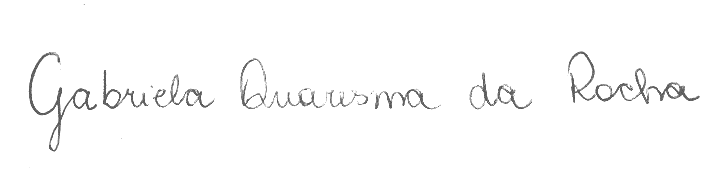 Gabriela Quaresma da Rocha